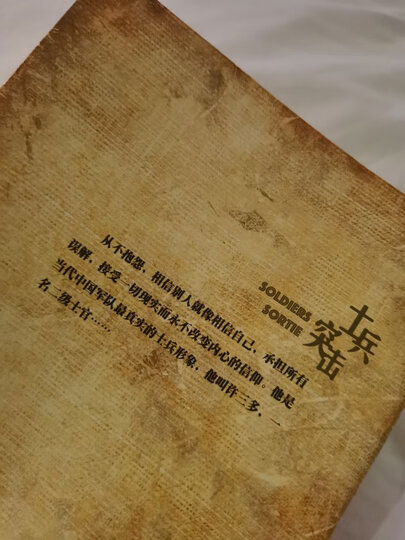 士兵
突击
SOLDIERS
SORTIE
从不抱怨，相信别人就像相信自己，承担所有
误解，接受一切现实而永不改变内心的信仰。他是
当代中国军队最真实的士兵形象，他叫许三多，一
名二级士官……